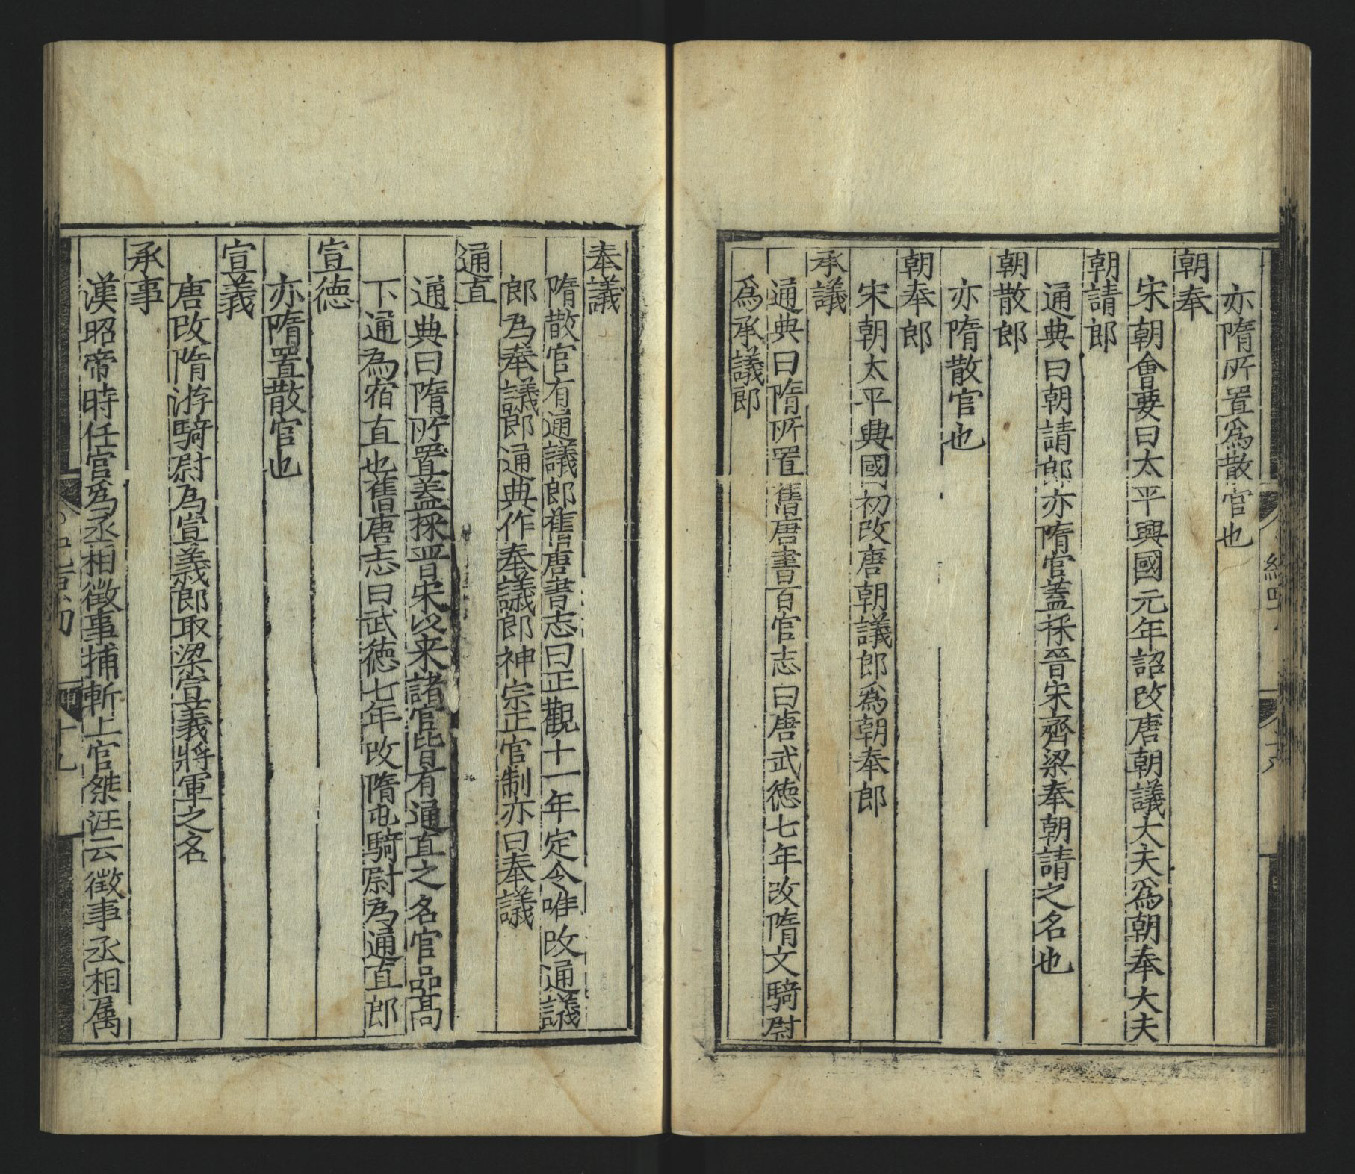 亦隋所置爲散官也
朝奉
宋朝會要曰太平興國元年詔改唐朝議大夫爲朝奉大夫
朝請郎
通典曰朝請郎亦隋官蓋採晉宋齊梁奉朝請之名也
朝散郎
亦隋散官也
朝奉郎
宋朝太平興國初改唐朝議郎爲朝奉郎
承議
通典曰隋所置舊唐書百官志曰唐武徳七年改隋文騎尉
爲承議郎
奉議
隋散官有通議郎舊唐書志曰正觀十一年定令唯改通議
郎为奉議郎通典作奉議郎神宗正官制亦曰奉議
通直
通典曰隋所置蓋採晋宋以来諸官皆有通直之名官品髙
下通为宿直也舊唐志曰武徳七年改隋屯騎尉为通直郎
宣徳
亦隋置散官也
宣義
唐改隋游騎尉为宣義郎取梁宣義將軍之名
承事
漢昭帝時任官爲丞相徴事捕斬上官桀注云徴事丞相属
十九